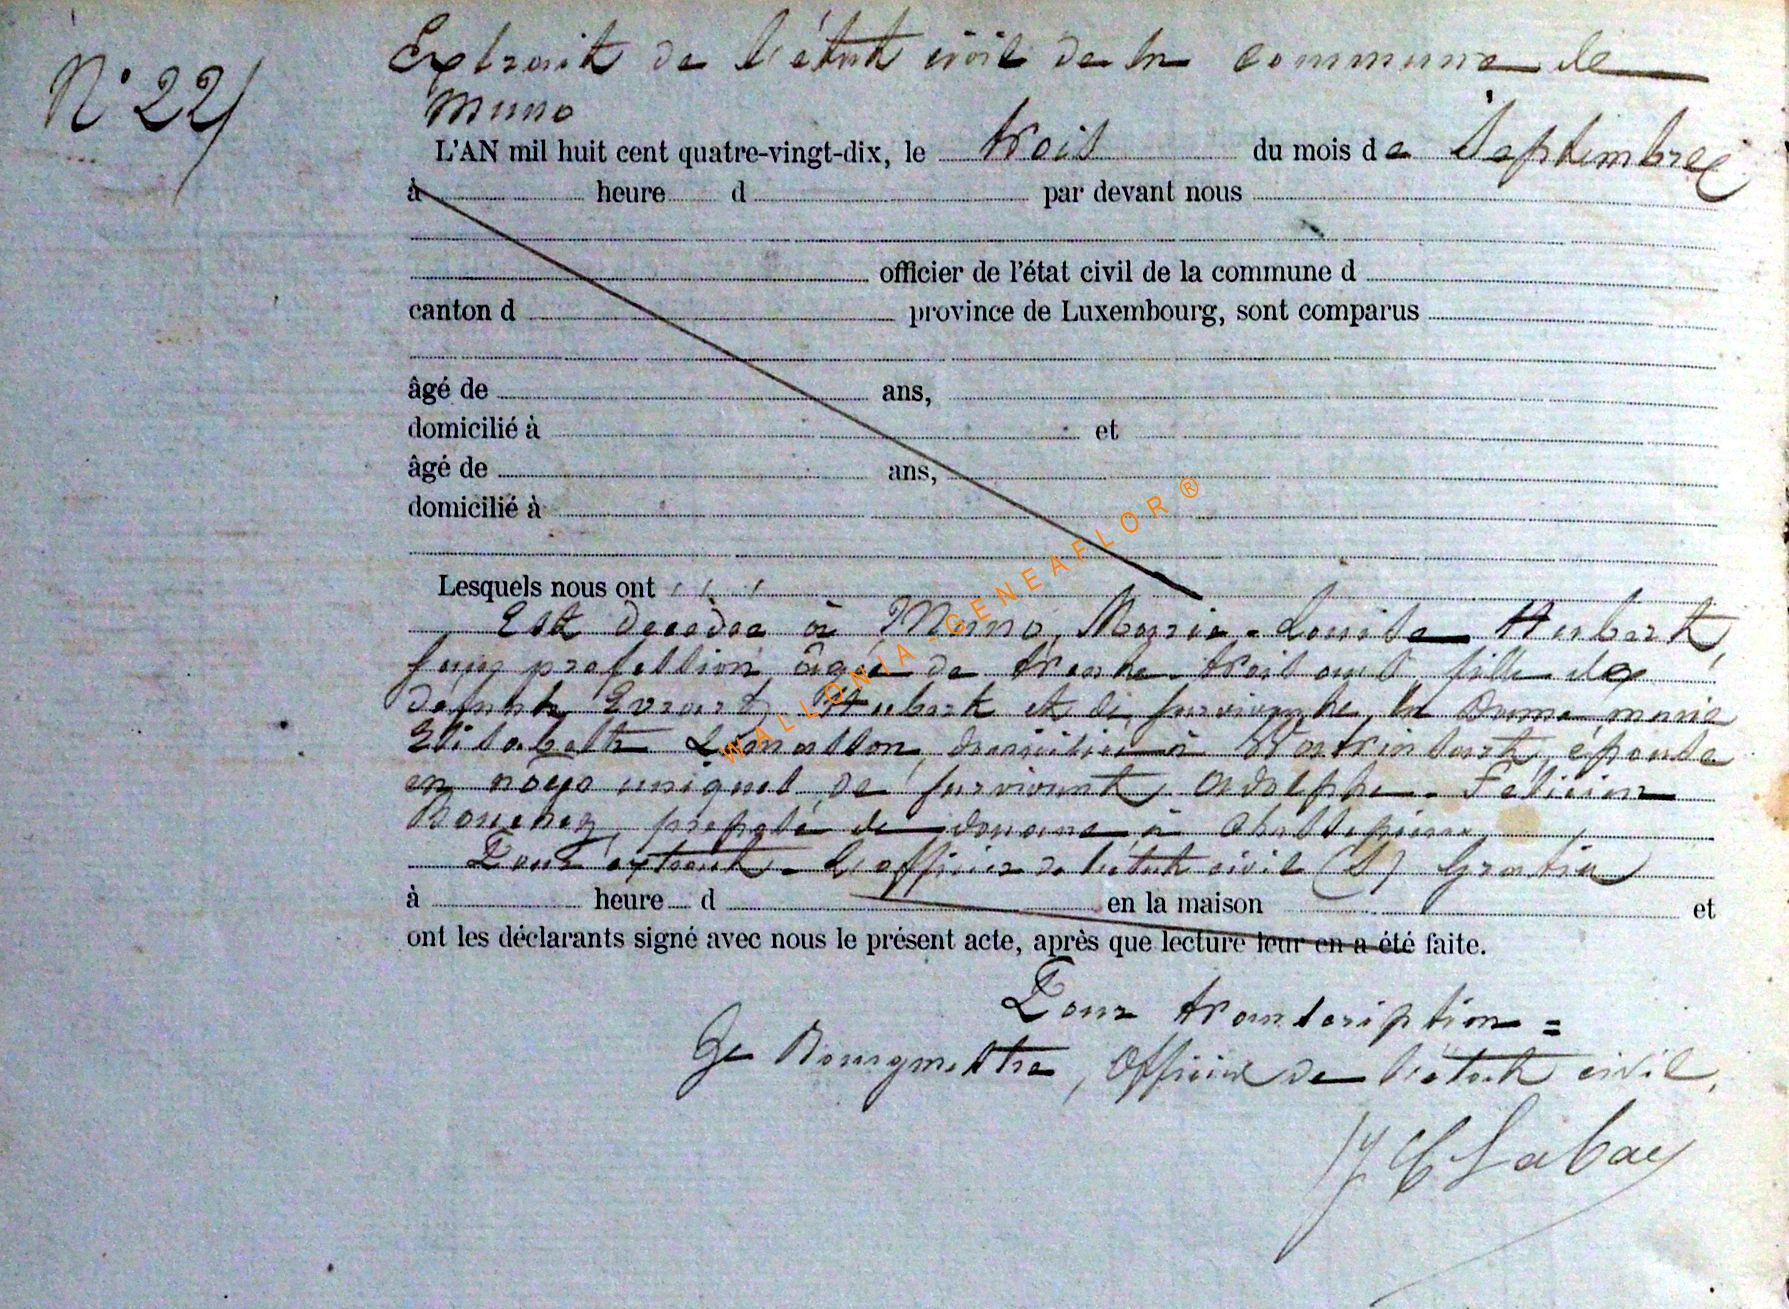 N° 22
Extrait de l'état civil de la commune de
Muno
L'AN mil huit cent quatre-vingt-dix, le trois du mois de Septembre
à heure d par devant nous
officier de l'état civil de la commune d
canton d province de Luxembourg, sont comparus
âgé de ans,
domicilié à et
âgé de ans,
domicilié à
Lesquels nous ont
Est décédée à Muno, Marie-Louise Hubert,
sans profession âgée de trente-trois ans, fille de
défunt Evrard Hubert et de survivante, la Dame Marie
Elisabeth domiciliée à épouse
en noces uniques de survivant Adolphe-Félicien
préposé de douane à Chassepierre
Pour extrait - l'officier de l'état civil (S)
à heure d en la maison et
ont les déclarants signé avec nous le présent acte, après que lecture leur en a été faite.
Pour transcription =
Le Bourgmestre, Officier de l'état civil,
WALLONIA-GENEAFLOR ®